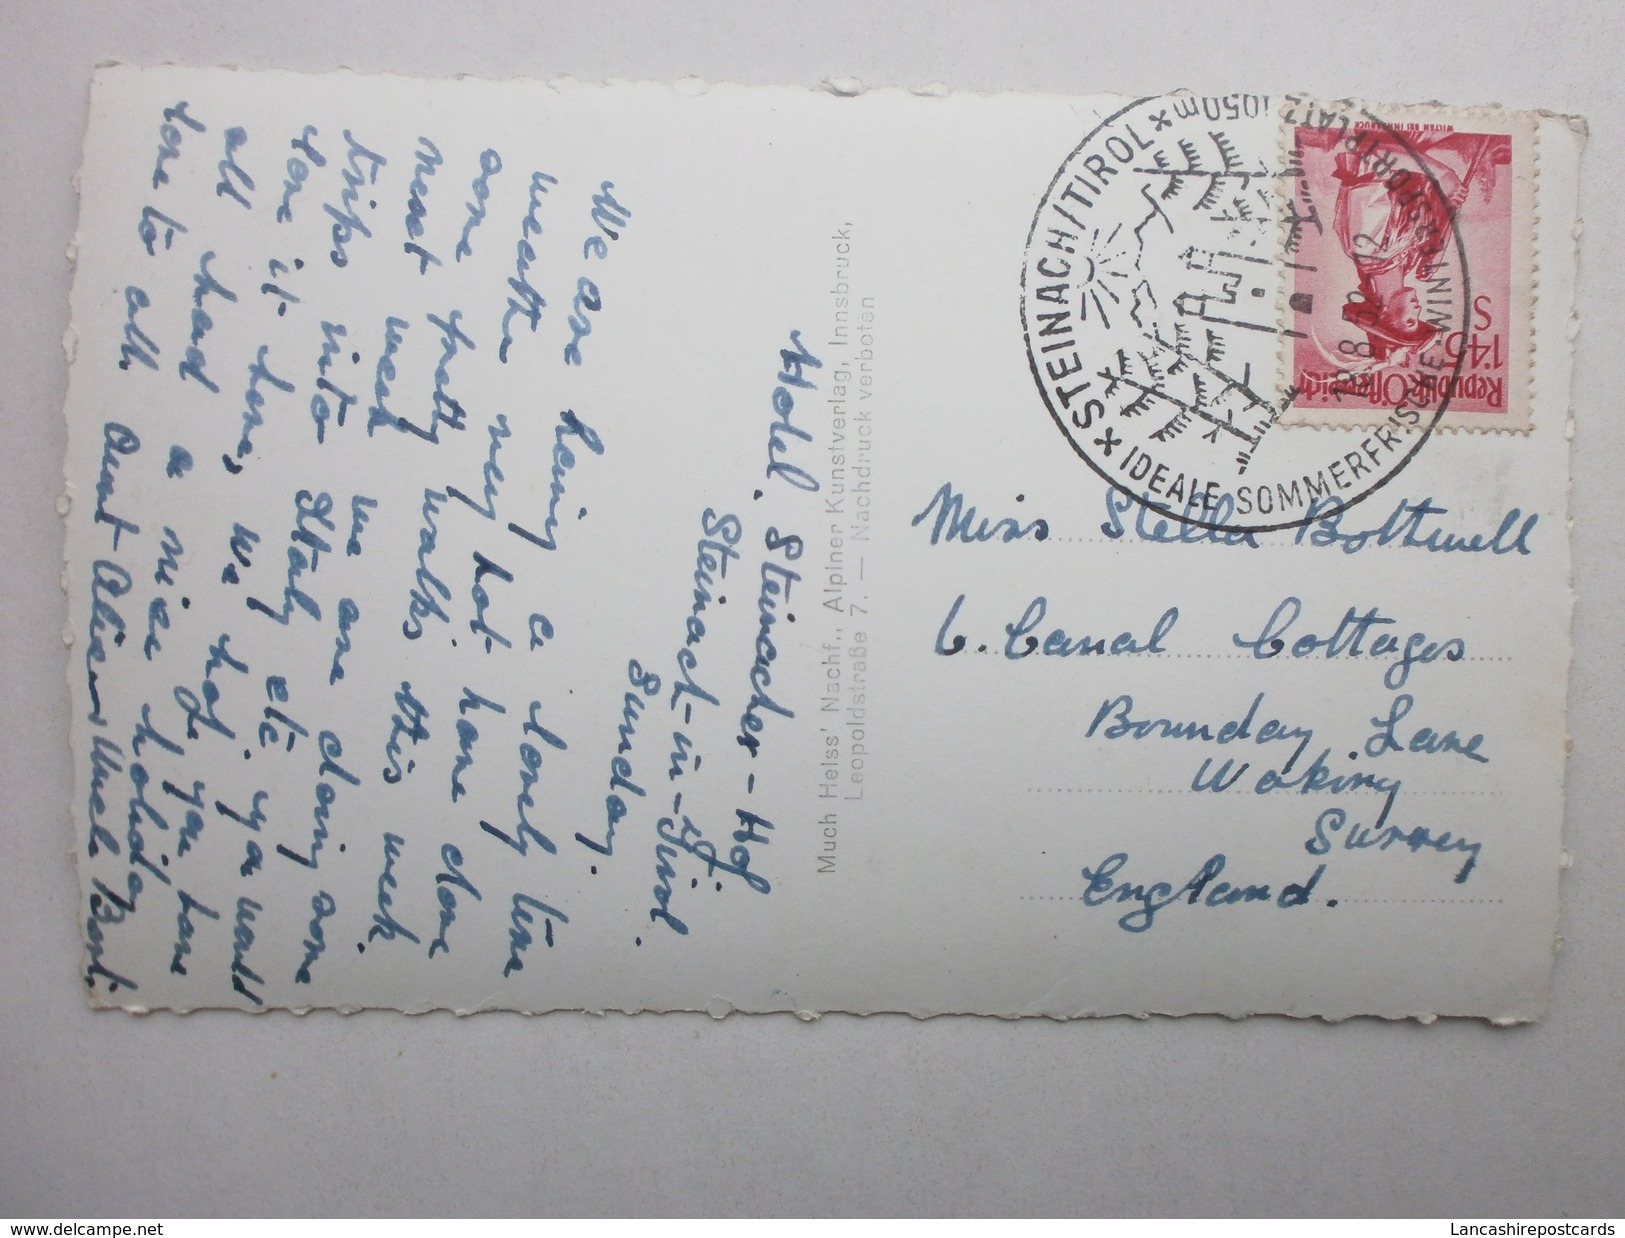 Hotel. Steinacher-Hof
Steinach-in-Tirol
Sunday.
We are having a lovely time
weather very hot have done
some pretty walks this week
next week we are doing some
trips into Italy etc. you would
love it here, we hope you have
all had a nice holiday
love to all. Aunt Alice & Uncle Bert.
Much Heiss' Nachf., Alpiner Kunstverlag, Innsbruck,
Leopoldstraße 7. — Nachdruck verboten
STEINACH/TIROL × 1050m
× IDEALE SOMMERFRISCHE WINTERSPORTPLATZ
18 8 52-12
WILTEN BEI INNSBRUCK
Republik Österreich
S 1·45
Miss Stella Bothwell
6. Canal Cottages
Boundary Lane
Woking
Surrey
England.
Lancashirepostcards